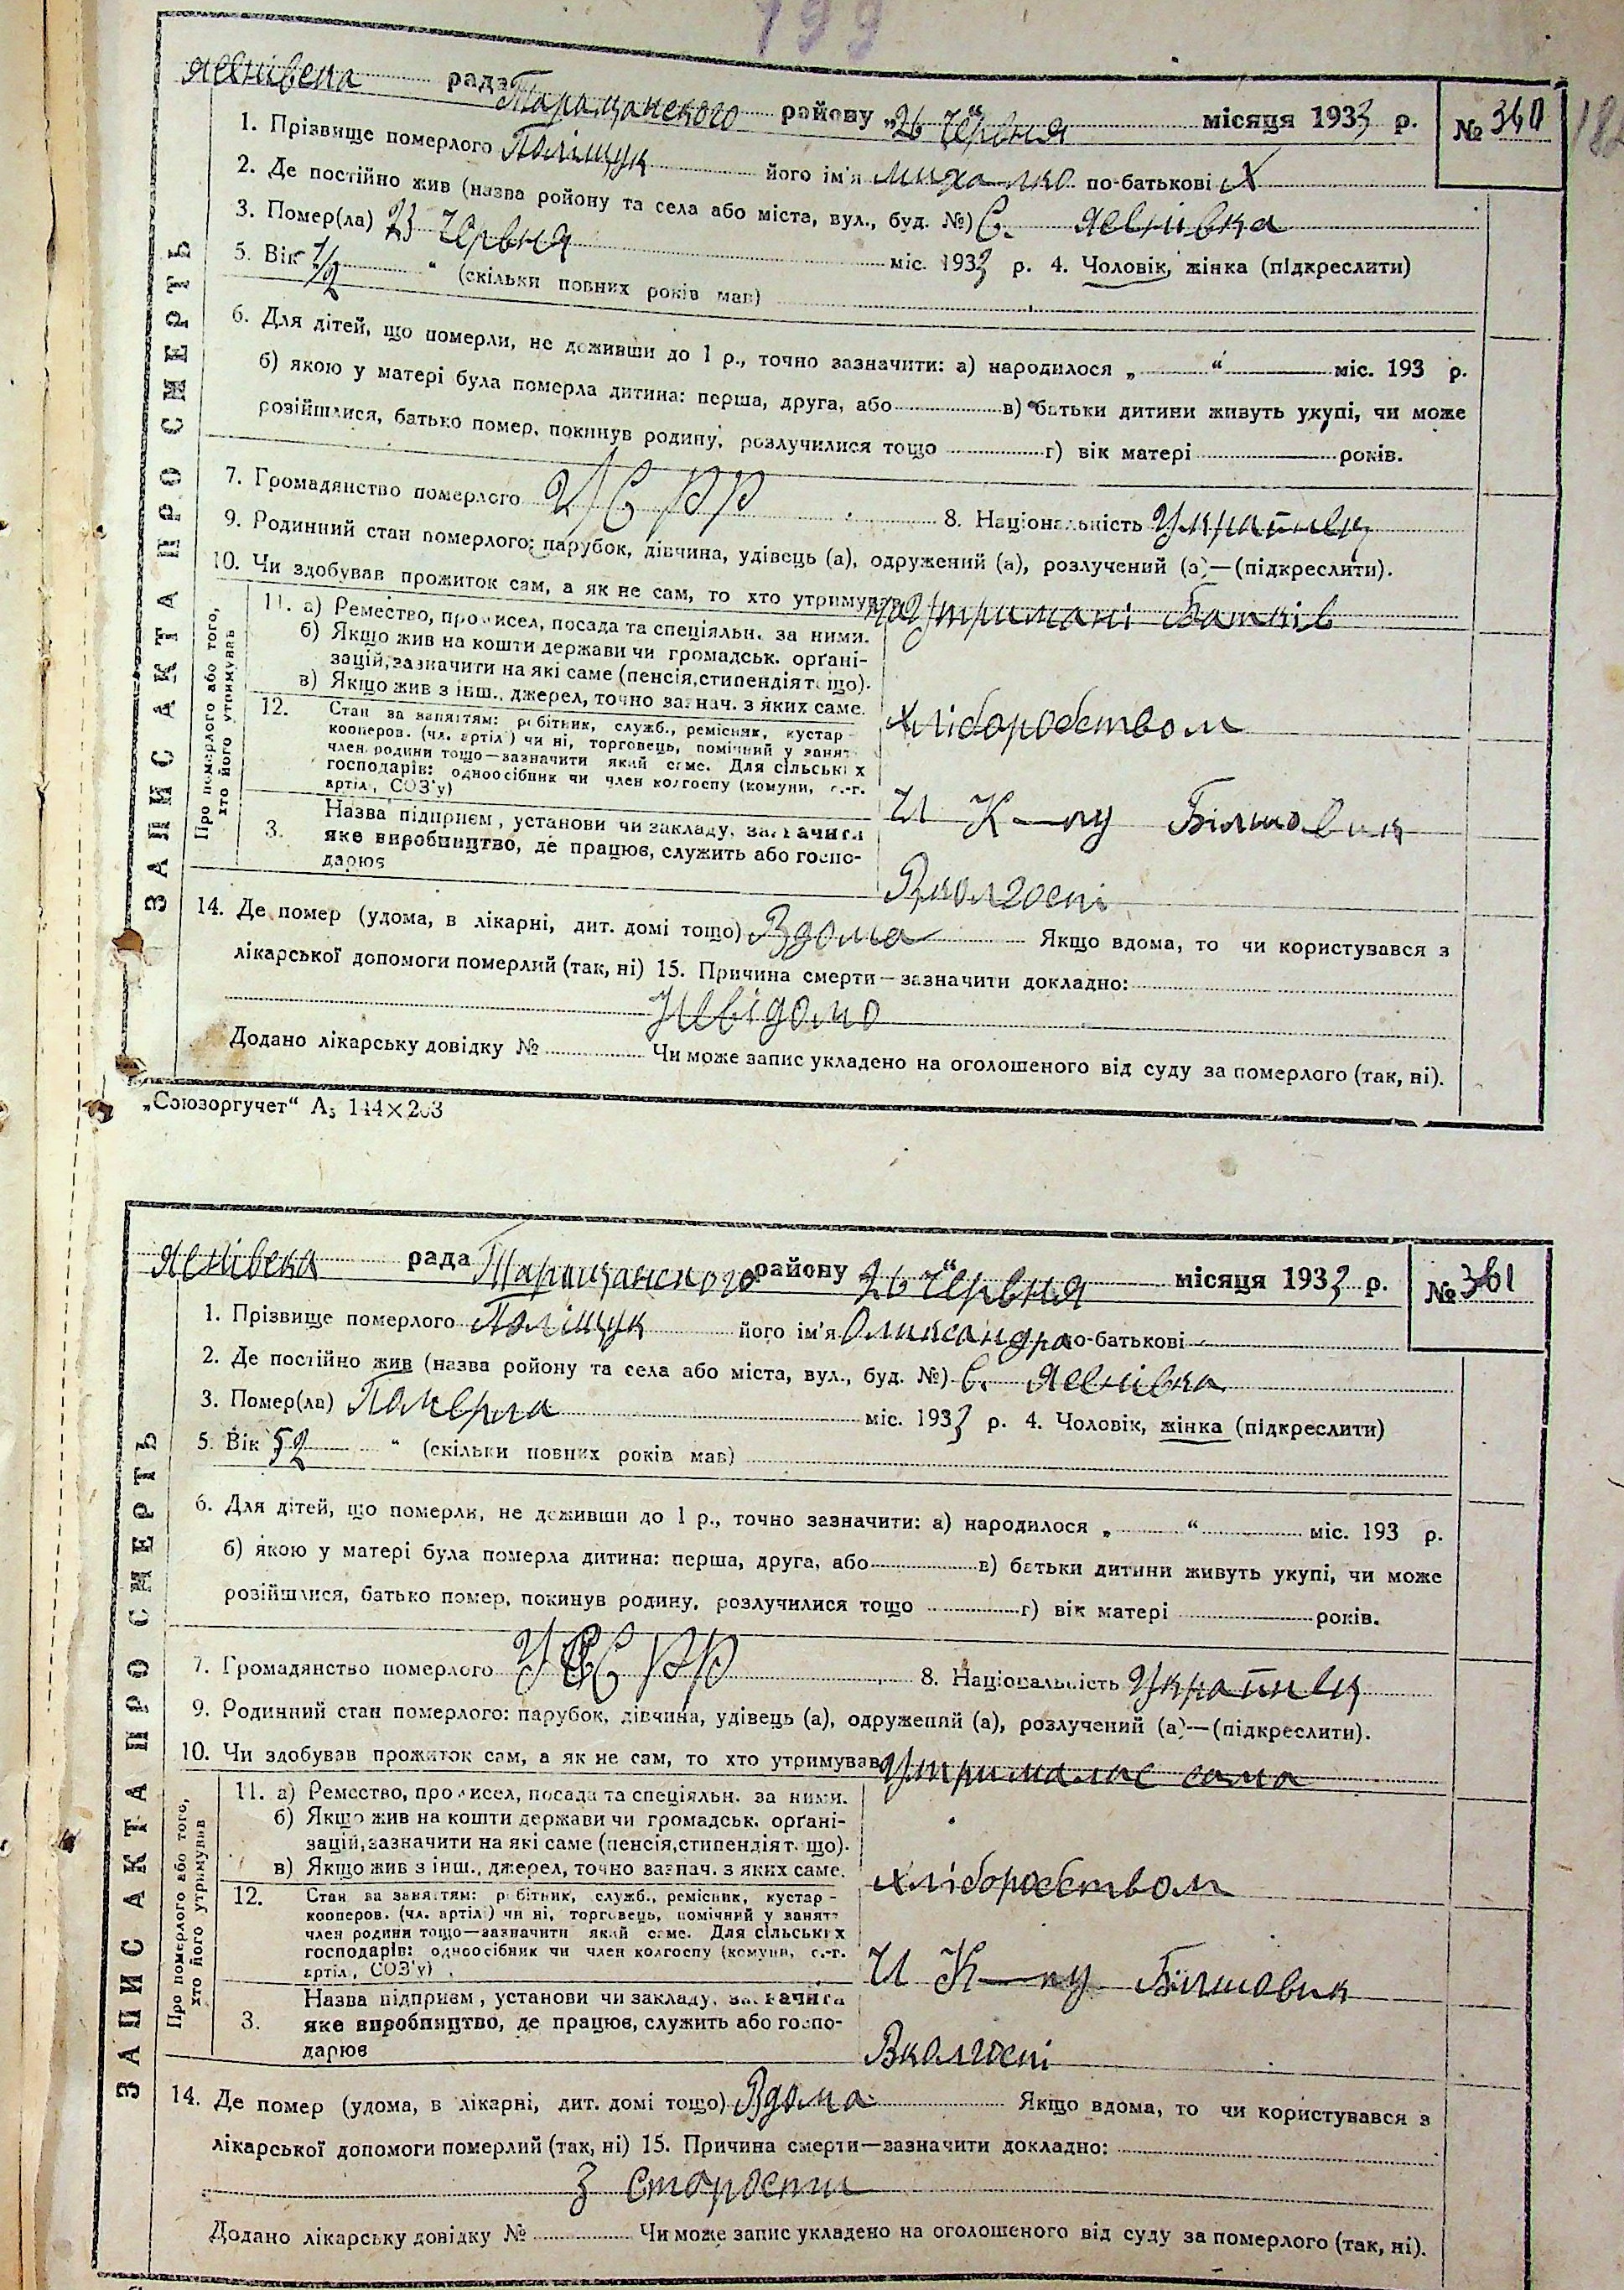 199
Яснівска рада Таращанского району „26 Червня“ місяця 1933 р. № 360
1. Прізвище померлого Поліщук його ім'я Михалко по-батькові Х
2. Де постійно жив (назва ройону та села або міста, вул., буд. №) С. Яснівка
3. Помер(ла) 23 Червня міс. 1933 р. 4. Чоловік, жінка (підкреслити)
5. Вік 1/2 “ (скільки повних років мав)
6. Для дітей, що померли, не доживши до 1 р., точно зазначити: а) народилося „ “ міс. 193 р.
б) якою у матері була померла дитина: перша, друга, або в) батьки дитини живуть укупі, чи може
розійшлися, батько помер, покинув родину, розлучилися тощо г) вік матері років.
7. Громадянство померлого УСРР 8. Національність Українец
9. Родинний стан померлого: парубок, дівчина, удівець (а), одружений (а), розлучений (а)—(підкреслити).
10. Чи здобував прожиток сам, а як не сам, то хто утримував на утримані Батків
ЗАПИС АКТА ПРО СМЕРТЬ
Про померлого або того, хто його утримував
11. а) Ремество, промисел, посада та спеціяльн. за ними.
б) Якщо жив на кошти держави чи громадськ. орґані-
зацій, зазначити на які саме (пенсія, стипендія тощо).
в) Якщо жив з інш., джерел, точно зазнач. з яких саме.
Хліборобством
12. Стан за заняттям: робітник, служб., ремісник, кустар-
кооперов. (чл. артіл.) чи ні, торговець, помічний у занят.
член родини тощо—зазначити який саме. Для сільських
господарів: одноосібник чи член колгоспу (комуни, с.-г.
артіл, СОЗ'у)
Ч К—пу Більшовик
3. Назва підприєм, установи чи закладу, зазначити
яке виробництво, де працює, служить або госпо-
дарює
Вколгоспі
14. Де помер (удома, в лікарні, дит. домі тощо) Вдома Якщо вдома, то чи користувався з
лікарської допомоги померлий (так, ні) 15. Причина смерти—зазначити докладно:
Невідомо
Додано лікарську довідку № Чи може запис укладено на оголошеного від суду за померлого (так, ні).
„Союзоргучет“ А5 144×203
Яснівска рада Таращанского району 26 Червня“ місяця 1933 р. № 361
1. Прізвище померлого Поліщук його ім'я Олександра по-батькові
2. Де постійно жив (назва ройону та села або міста, вул., буд. №) С. Яснівка
3. Помер(ла) Померла міс. 1933 р. 4. Чоловік, жінка (підкреслити)
5. Вік 52 “ (скільки повних років мав)
6. Для дітей, що померли, не доживши до 1 р., точно зазначити: а) народилося „ “ міс. 193 р.
б) якою у матері була померла дитина: перша, друга, або в) батьки дитини живуть укупі, чи може
розійшлися, батько помер, покинув родину, розлучилися тощо г) вік матері років.
7. Громадянство померлого УСРР 8. Національність Українец
9. Родинний стан померлого: парубок, дівчина, удівець (а), одружений (а), розлучений (а)—(підкреслити).
10. Чи здобував прожиток сам, а як не сам, то хто утримував Утрималас сама
ЗАПИС АКТА ПРО СМЕРТЬ
Про померлого або того, хто його утримував
11. а) Ремество, промисел, посада та спеціяльн. за ними.
б) Якщо жив на кошти держави чи громадськ. орґані-
зацій, зазначити на які саме (пенсія, стипендія тощо).
в) Якщо жив з інш., джерел, точно зазнач. з яких саме.
Хліборобством
12. Стан за заняттям: робітник, служб., ремісник, кустар-
кооперов. (чл. артіл.) чи ні, торговець, помічний у занят.
член родини тощо—зазначити який саме. Для сільських
господарів: одноосібник чи член колгоспу (комуни, с.-г.
артіл, СОЗ'у)
Ч К—пу Більшовик
3. Назва підприєм, установи чи закладу, зазначити
яке виробництво, де працює, служить або госпо-
дарює
Вколгоспі
14. Де помер (удома, в лікарні, дит. домі тощо) Вдома Якщо вдома, то чи користувався з
лікарської допомоги померлий (так, ні) 15. Причина смерти—зазначити докладно:
З старости
Додано лікарську довідку № Чи може запис укладено на оголошеного від суду за померлого (так, ні).